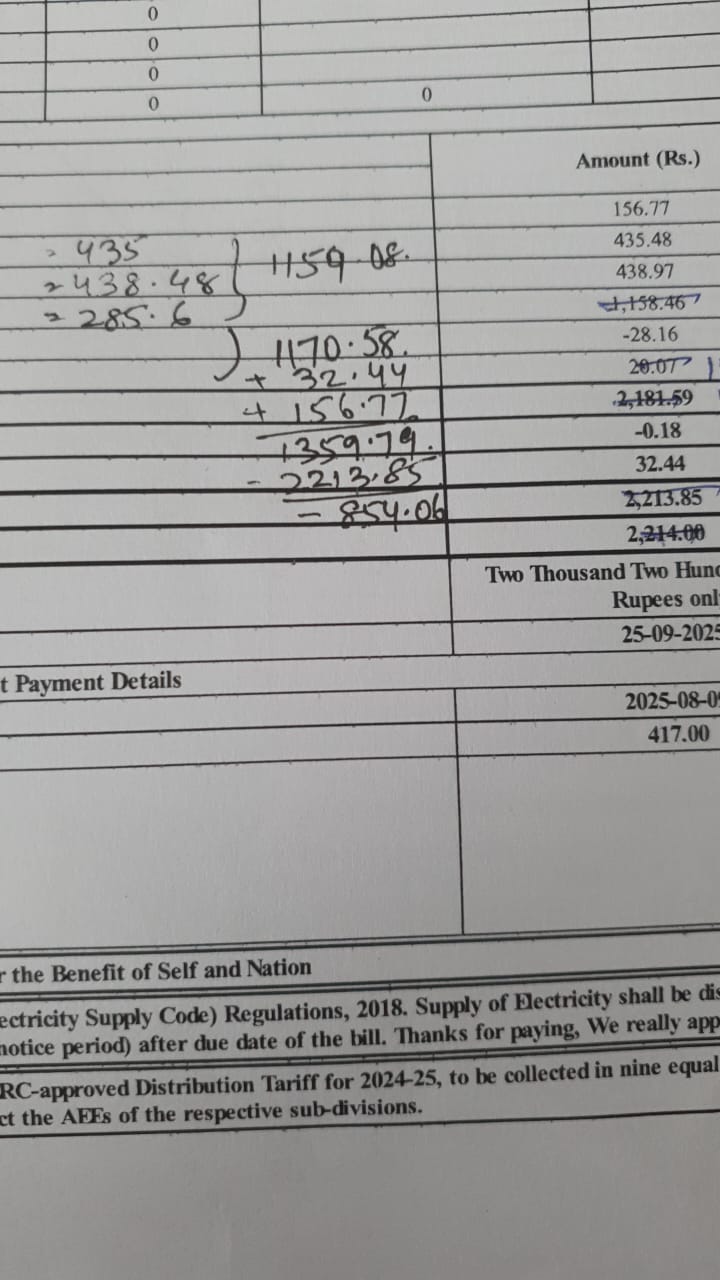 0
0
0
0 0
Amount (Rs.)
156.77
= 435 435.48
= 438.48 } 1159.08. 438.97
= 285.6 1,158.46
) 1170.58. -28.16
+ 32.44 20.07
+ 156.77 2,181.59
1359.79. -0.18
- 2213.85 32.44
- 854.06 2,213.85
2,214.00
Two Thousand Two
Rupees
25-09-2025
t Payment Details
2025-08-0
417.00
r the Benefit of Self and Nation
ectricity Supply Code) Regulations, 2018. Supply of Electricity shall be dis
notice period) after due date of the bill. Thanks for paying, We really app
RC-approved Distribution Tariff for 2024-25, to be collected in nine equal
ct the AEEs of the respective sub-divisions.